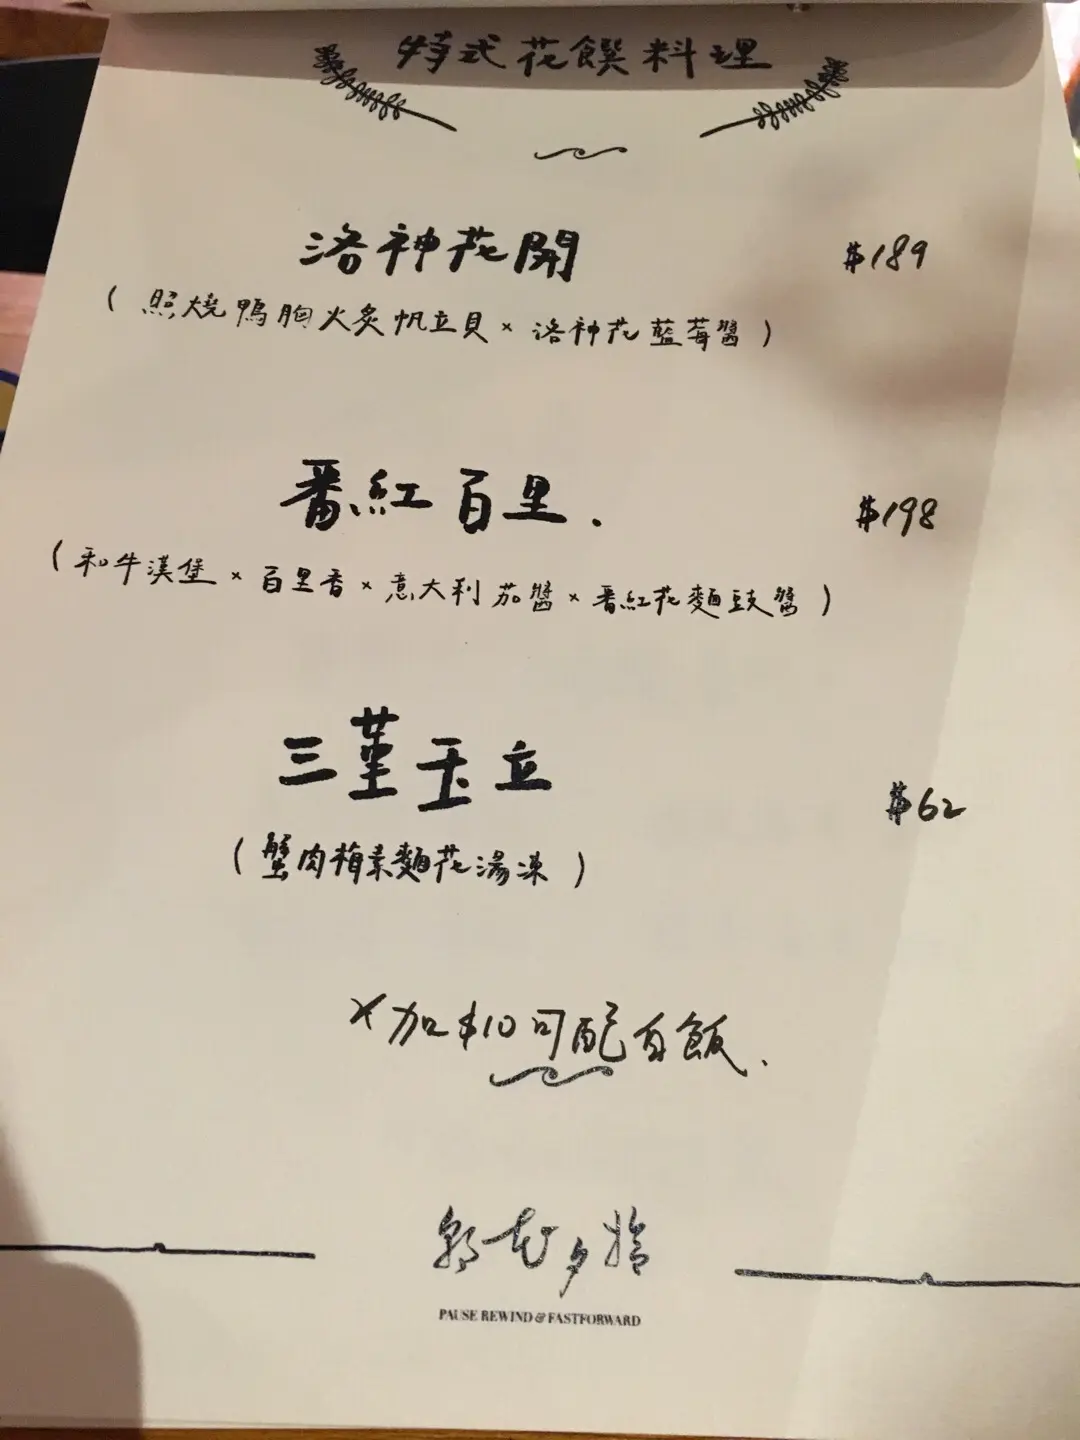 特式花饌料理
洛神花開 $189
(照燒鴨胸火炙帆立貝×洛神花藍莓醬)
番紅百里. $198
(和牛漢堡×百里香×意大利茄醬×番紅花麵豉醬)
三堇玉立 $62
(蟹肉梅素麵花湯凍)
×加$10可配白飯.
朝花夕拾
PAUSE REWIND & FASTFORWARD